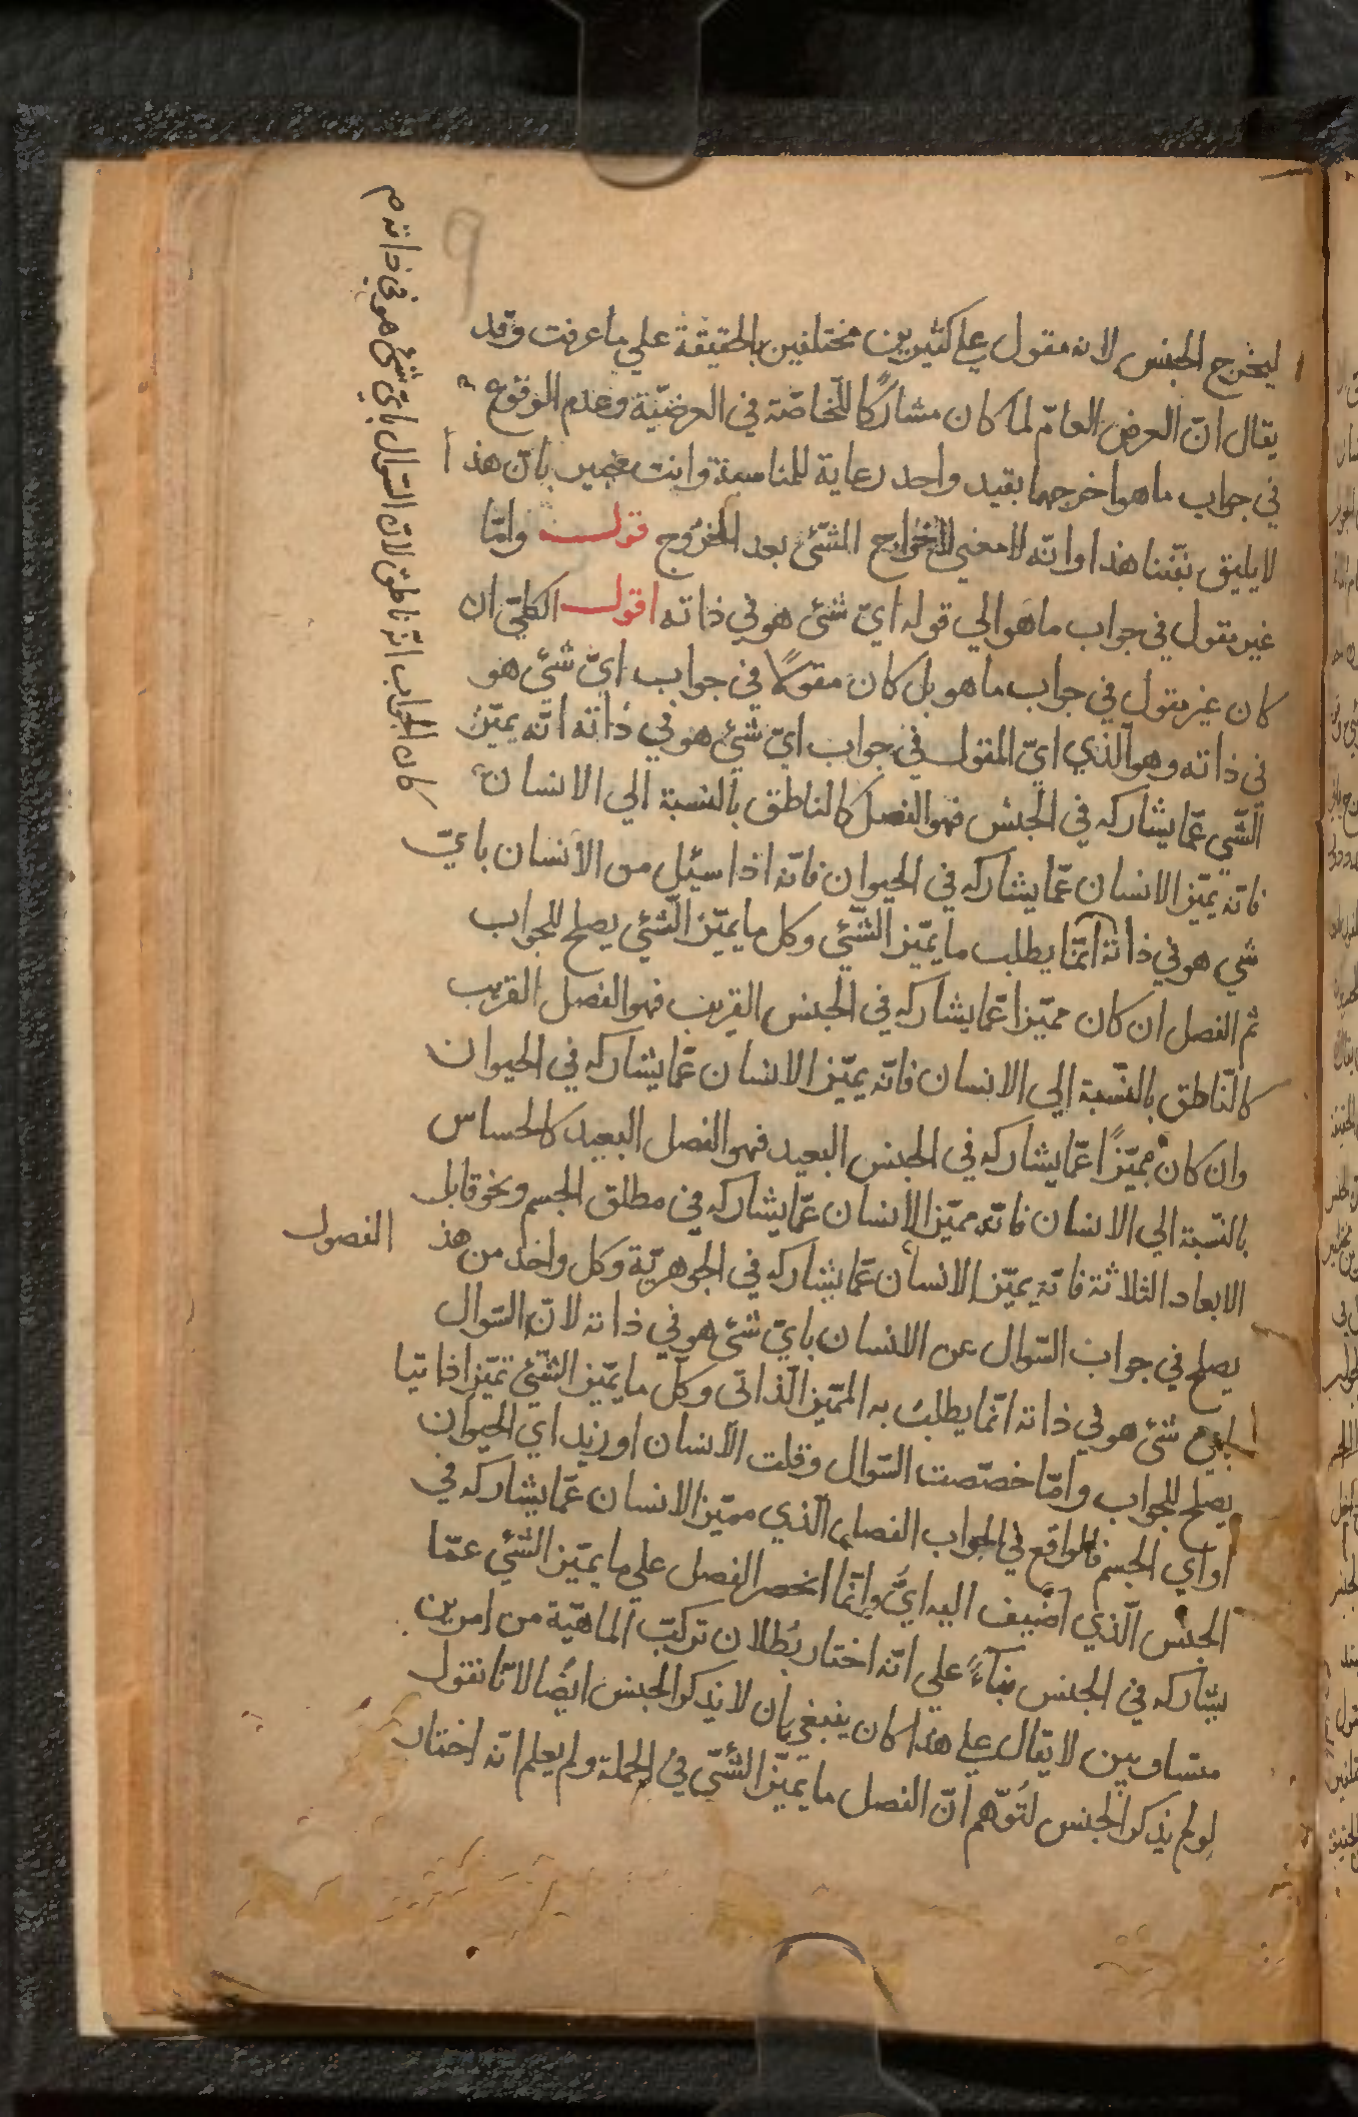 ليخرج الجنس لانه مقول علي كثيرين مختلفين بالحقيقة علي ما عرفت وقد
يقال انّ العرض العامّ لما كان مشاركًا للخاصّة في العرضيّة وعدم الوقوع
في جواب ما هو اخرجهما بقيد واحد رعاية للمناسبة وانت خبير بانّ هذا
لا يليق بفنّنا هذا وانّه لا معني لاخراج الشّئ بعد الخروج قولـــه وامّا
غير مقول في جواب ما هو الي قوله ايّ شئ هو في ذاته اقول الكلّيّ ان
كان غير مقول في جواب ما هو بل كان مقولًا في جواب ايّ شئ هو
في ذاته وهو الّذي ايّ المقول في جواب ايّ شئ هو في ذاته انّه يميّز
الشّي عمّا يشاركه في الجنس فهو الفصل كالناطق بالنسبة الي الانسان
فانّه يميّز الانسان عمّا يشاركه في الحيوان فانّه اذا سئل من الانسان بايّ
شي هو في ذاته انّما يطلب ما يميّز الشّئي وكل ما يميّز الشّئي يصلح للجواب
ثم الفصل ان كان مميّزا عمّا يشاركه في الجنس القريب فهو الفصل القريب
كالنّاطق بالنّسبة الي الانسان فانّه يميّز الانسان عمّا يشاركه في الحيوان
وان كان مميّزًا عمّا يشاركه في الجنس البعيد فهو الفصل البعيد كالحساس
بالنّسبة الي الانسان فانّه مميّز الانسان عمّا يشاركه في مطلق الجسم ونحو قابل
الابعاد الثلاثة فانّه يميّز الانسان عمّا يشاركه في الجوهريّة وكل واحد من هذ الفصول
يصلح في جواب السّوال عن الانسان بايّ شئ هو في ذاته لانّ السّوال
بايّ شئ هو في ذاته انّما يطلب به المميّز الذّاتي وكلّ ما يميّز الشّئي تميّزا ذاتيّا
يصلح للجواب وامّا خصّصت السّوال وقلت الانسان او زيد اي الحيوان
او اي الجسم فالواقع في الجواب الفصل الّذي مميّز الانسان عمّا يشاركه في
الجنس الّذي اضيف اليه ايّ وانّما انحصر الفصل علي ما يميّز الشّئي عمّا
يشاركه في الجنس بناءً علي انّه اختار بُطلان تركّب الماهيّة من امرين
متساويين لا يقال علي هذا كان ينبغي بان لا يذكر الجنس ايضًا لانّا نقول
لو لم يذكر الجنس لتُوهّم انّ الفصل ما يميّز الشّئي في الجملة ولم يعلم انّه اختار
كان الجواب انّه ناطق لانّ السّوال بايّ شئ هو في ذاته م